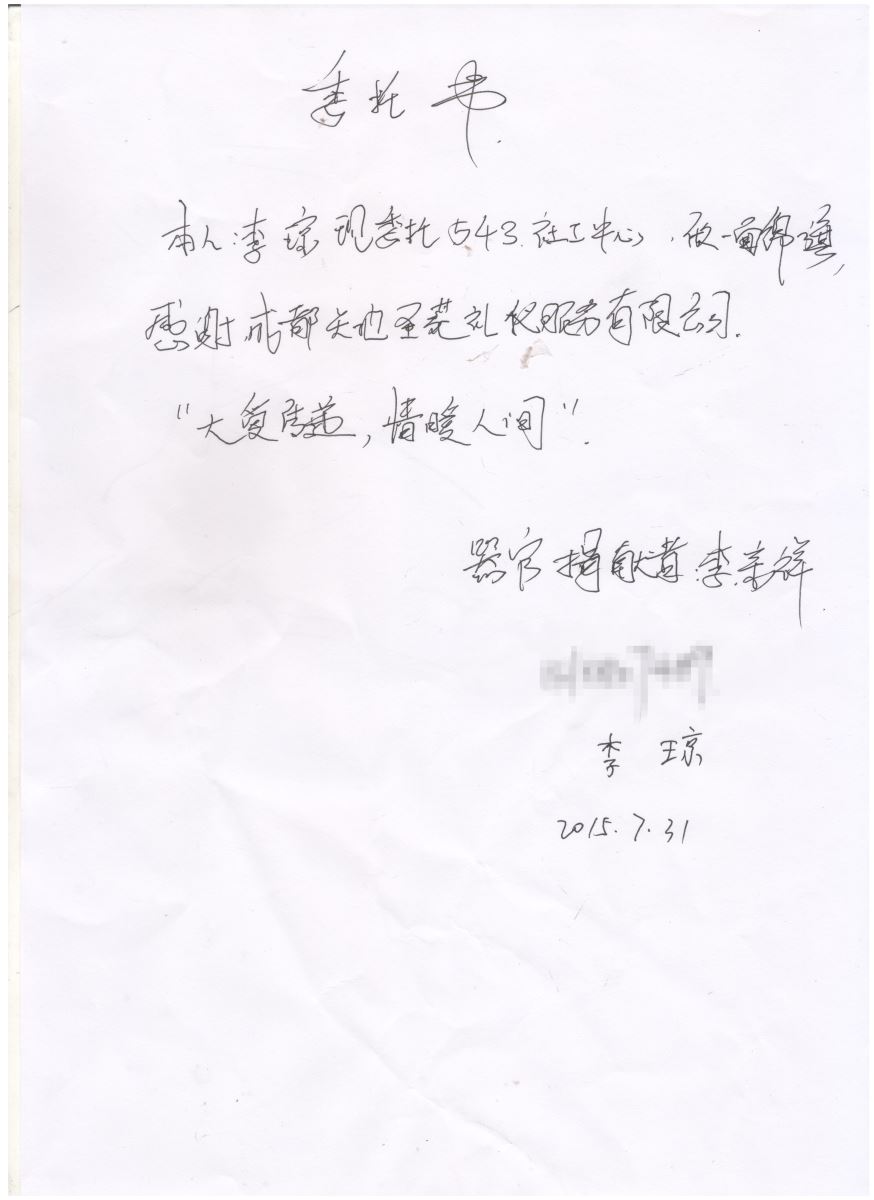 委托书
本人:李琼现委托543.社工中心,做一面锦旗,
感谢成都天地圣菀礼仪服务有限公司.
"大爱传递,情暖人间".
器官捐献者:李宗祥.
李 琼
2015.7.31